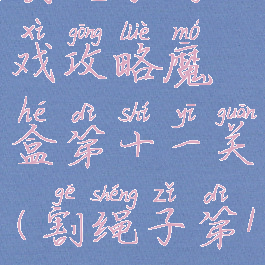 xì gōng lüè mó
戏攻略魔
hé dì shí yī guān
盒第十一关
gē shéng zǐ dì
(割绳子第1